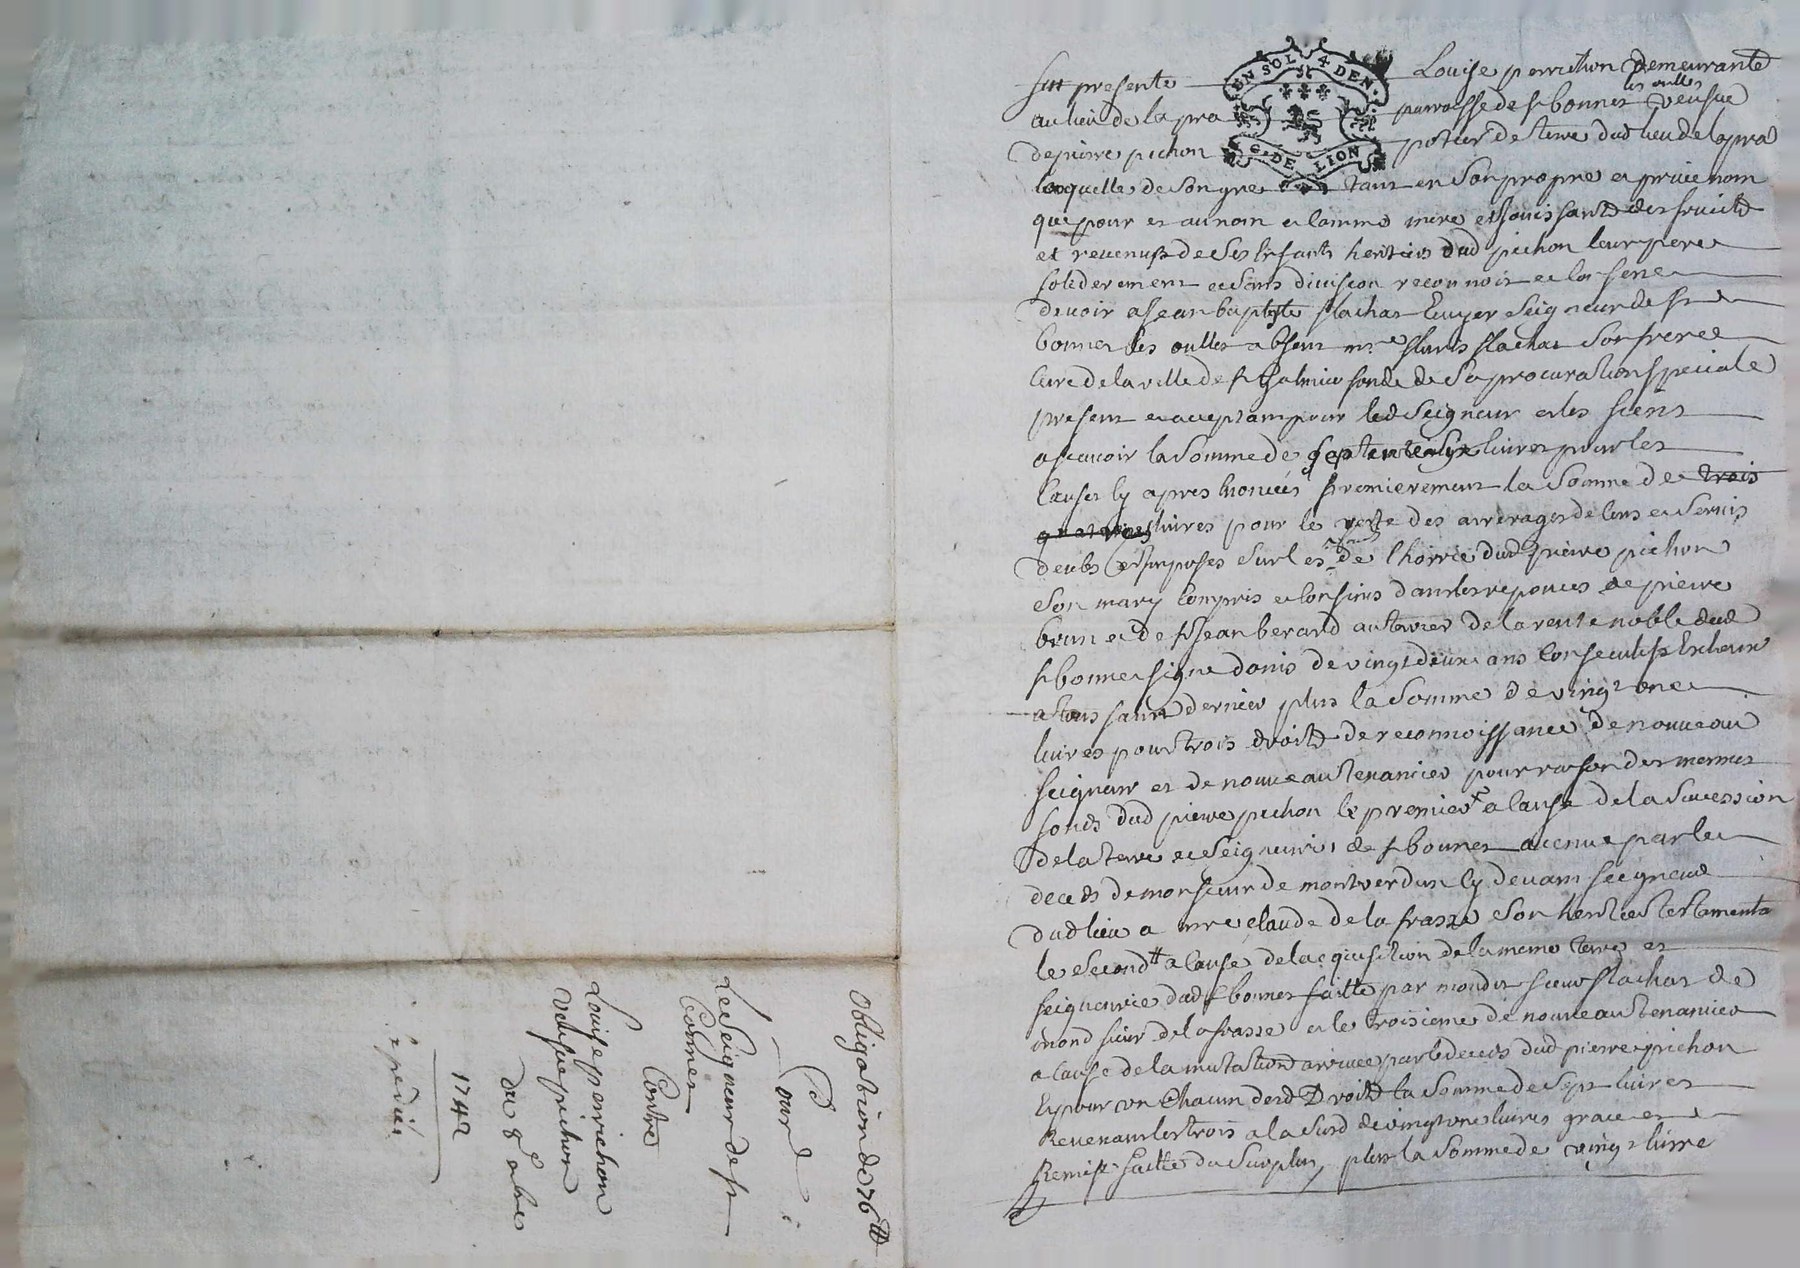 Obligation de 76 ₶
Pour
Le Seigneur de st
bonnet
Contre
Louise perrichon
veufue pichon
du 8e
1742
Expediée
UN SOL 4 DEN.
G. DE LION
fut presente Louise perrichon demeurante
les oulles
au lieu de la pra parroisse de st bonnet veufue
de pierre pichon potier de terre dud lieu de la pra
laquelle de son gre tant en son propre et priué nom
que pour et au nom et comme mere et jouissante des fruicts
et reuenus de ses enfants heritiers dud pichon leur pere
soliderement et sans diuision reconnoit et confesse
deuoir a Jean baptiste flachat Ecuyer Seigneur de st
bonnet les oulles absent mre fleuris flachat son frere
cure de la ville de st galmier fondé de sa procuration speciale
present et acceptant pour led Seigneur et les siens
ascauoir la somme de septente six liures pour les
causes cy apres enoncées premierement la somme de trois
quatre liures pour le reste des arrerages de cens et seruis
deubs et imposes sur les fonds de l'hoirie dud pierre pichon
son mary compris et confinés dans les reponces de pierre
brun et de st Jean berard au terrier de la rente noble dud
st bonnet signe donis de vingt deux ans consecutifs Echeux
a tous saints dernier plus la somme de vingt une
liures pour trois droits de reconnoissance de nouueau
seigneur et de nouueau tenancier pour raison des memes
fonds dud pierre pichon le premier a cause de la succession
de la terre et Seigneurie de st bonnet auenue par le
deceds de monsieur de montverdun cy deuant seigneur
dud lieu a mre claude de la frasse son heritier testamenta
le second a cause de l'acquisition de la meme terre et
seigneurie dud st bonnet faitte par mondit sieur flachat de
mond sieur de la frasse et le troisieme de nouueau tenancier
a cause de la mutation arriuée par le deceds dud pierre pichon
Et pour un chacun desd Droits la somme de sept liures
Reuenant les trois a lasusd de vingt une liures grace et
Remise faitte du surplus, plus la somme de vingt liure